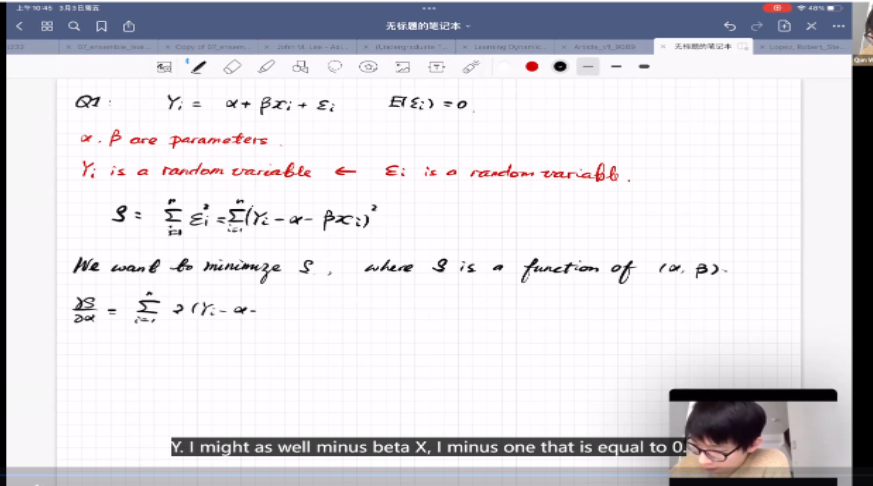 上午10:45 3月3日周五
48%
无标题的笔记本
Copy of S7_ensem...
John M. Lee - An...
(Undergraduate T...
Learning Dynamic...
无标题的笔记本
Lopez, Robert_Ste...
Q1: Yi = α + βxi + εi E(εi) = 0.
α, β are parameters.
Yi is a random variable ← εi is a random variable.
S = Σ_{i=1}^{n} εi² = Σ_{i=1}^{n} (Yi - α - βxi)²
We want to minimize S, where S is a function of (α, β).
∂S/∂α = Σ_{i=1}^{n} 2(Yi - α -
Y. I might as well minus beta X, I minus one that is equal to 0.